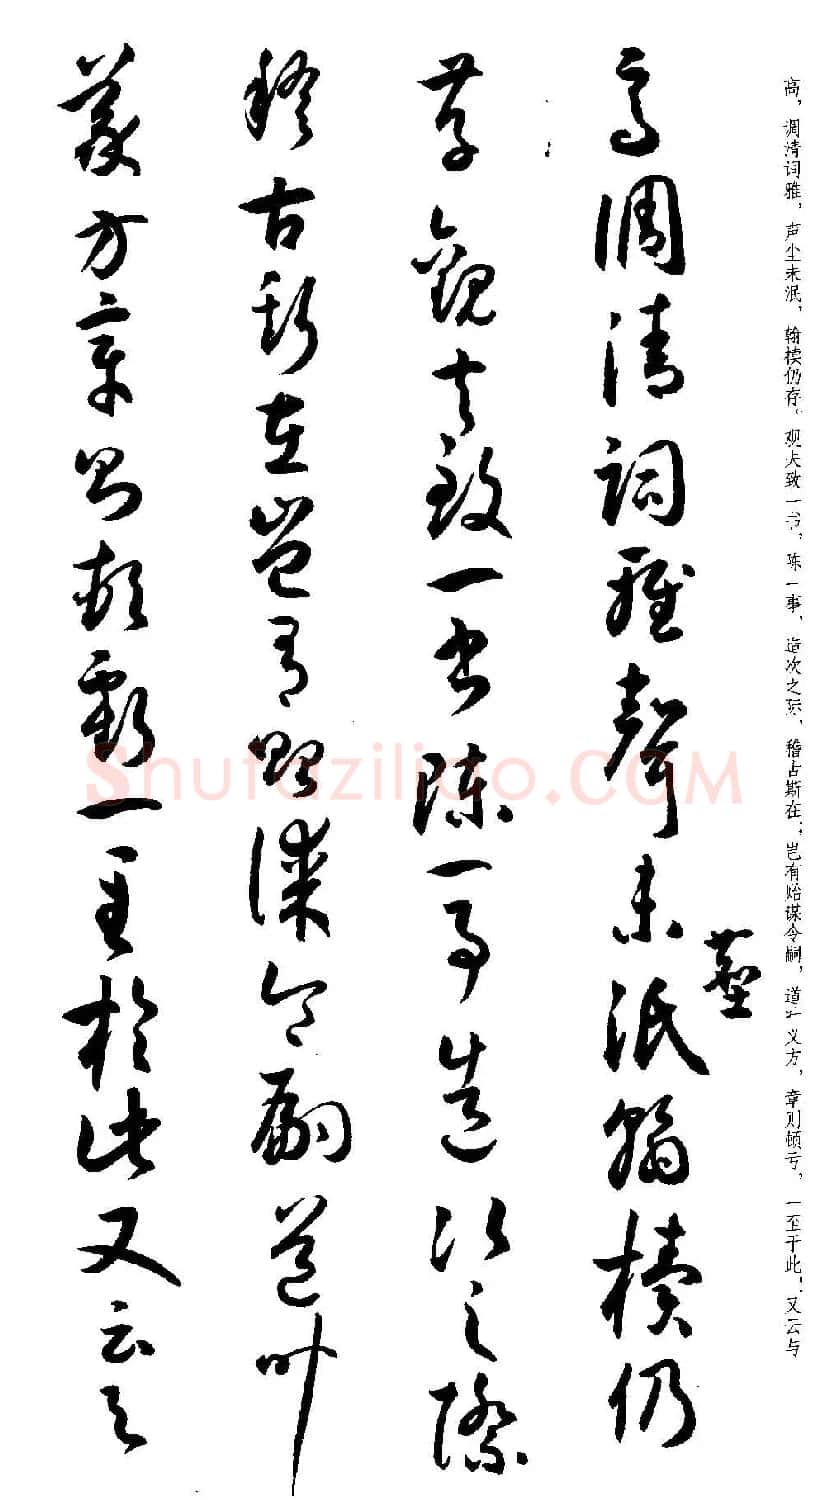 高，调清词雅，声尘未泯，翰椟仍存。观夫致一书，陈一事，造次之际，稽古斯在；岂有贻谋令嗣，道叶义方，章则顿亏，一至于此！又云与
塵
高調清詞雅聲未泯翰櫝仍
存觀夫致一書陳一事造次之際
稽古斯在豈有貽謀令嗣道叶
義方章則頓虧一至於此又云与
Shufaziliao.COM